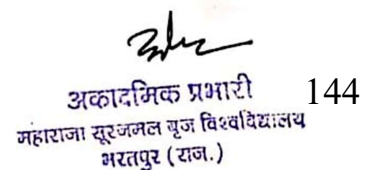 अकादमिक प्रभारी 144
महाराजा सूरजमल बृज विश्वविद्यालय
भरतपुर (राज.)